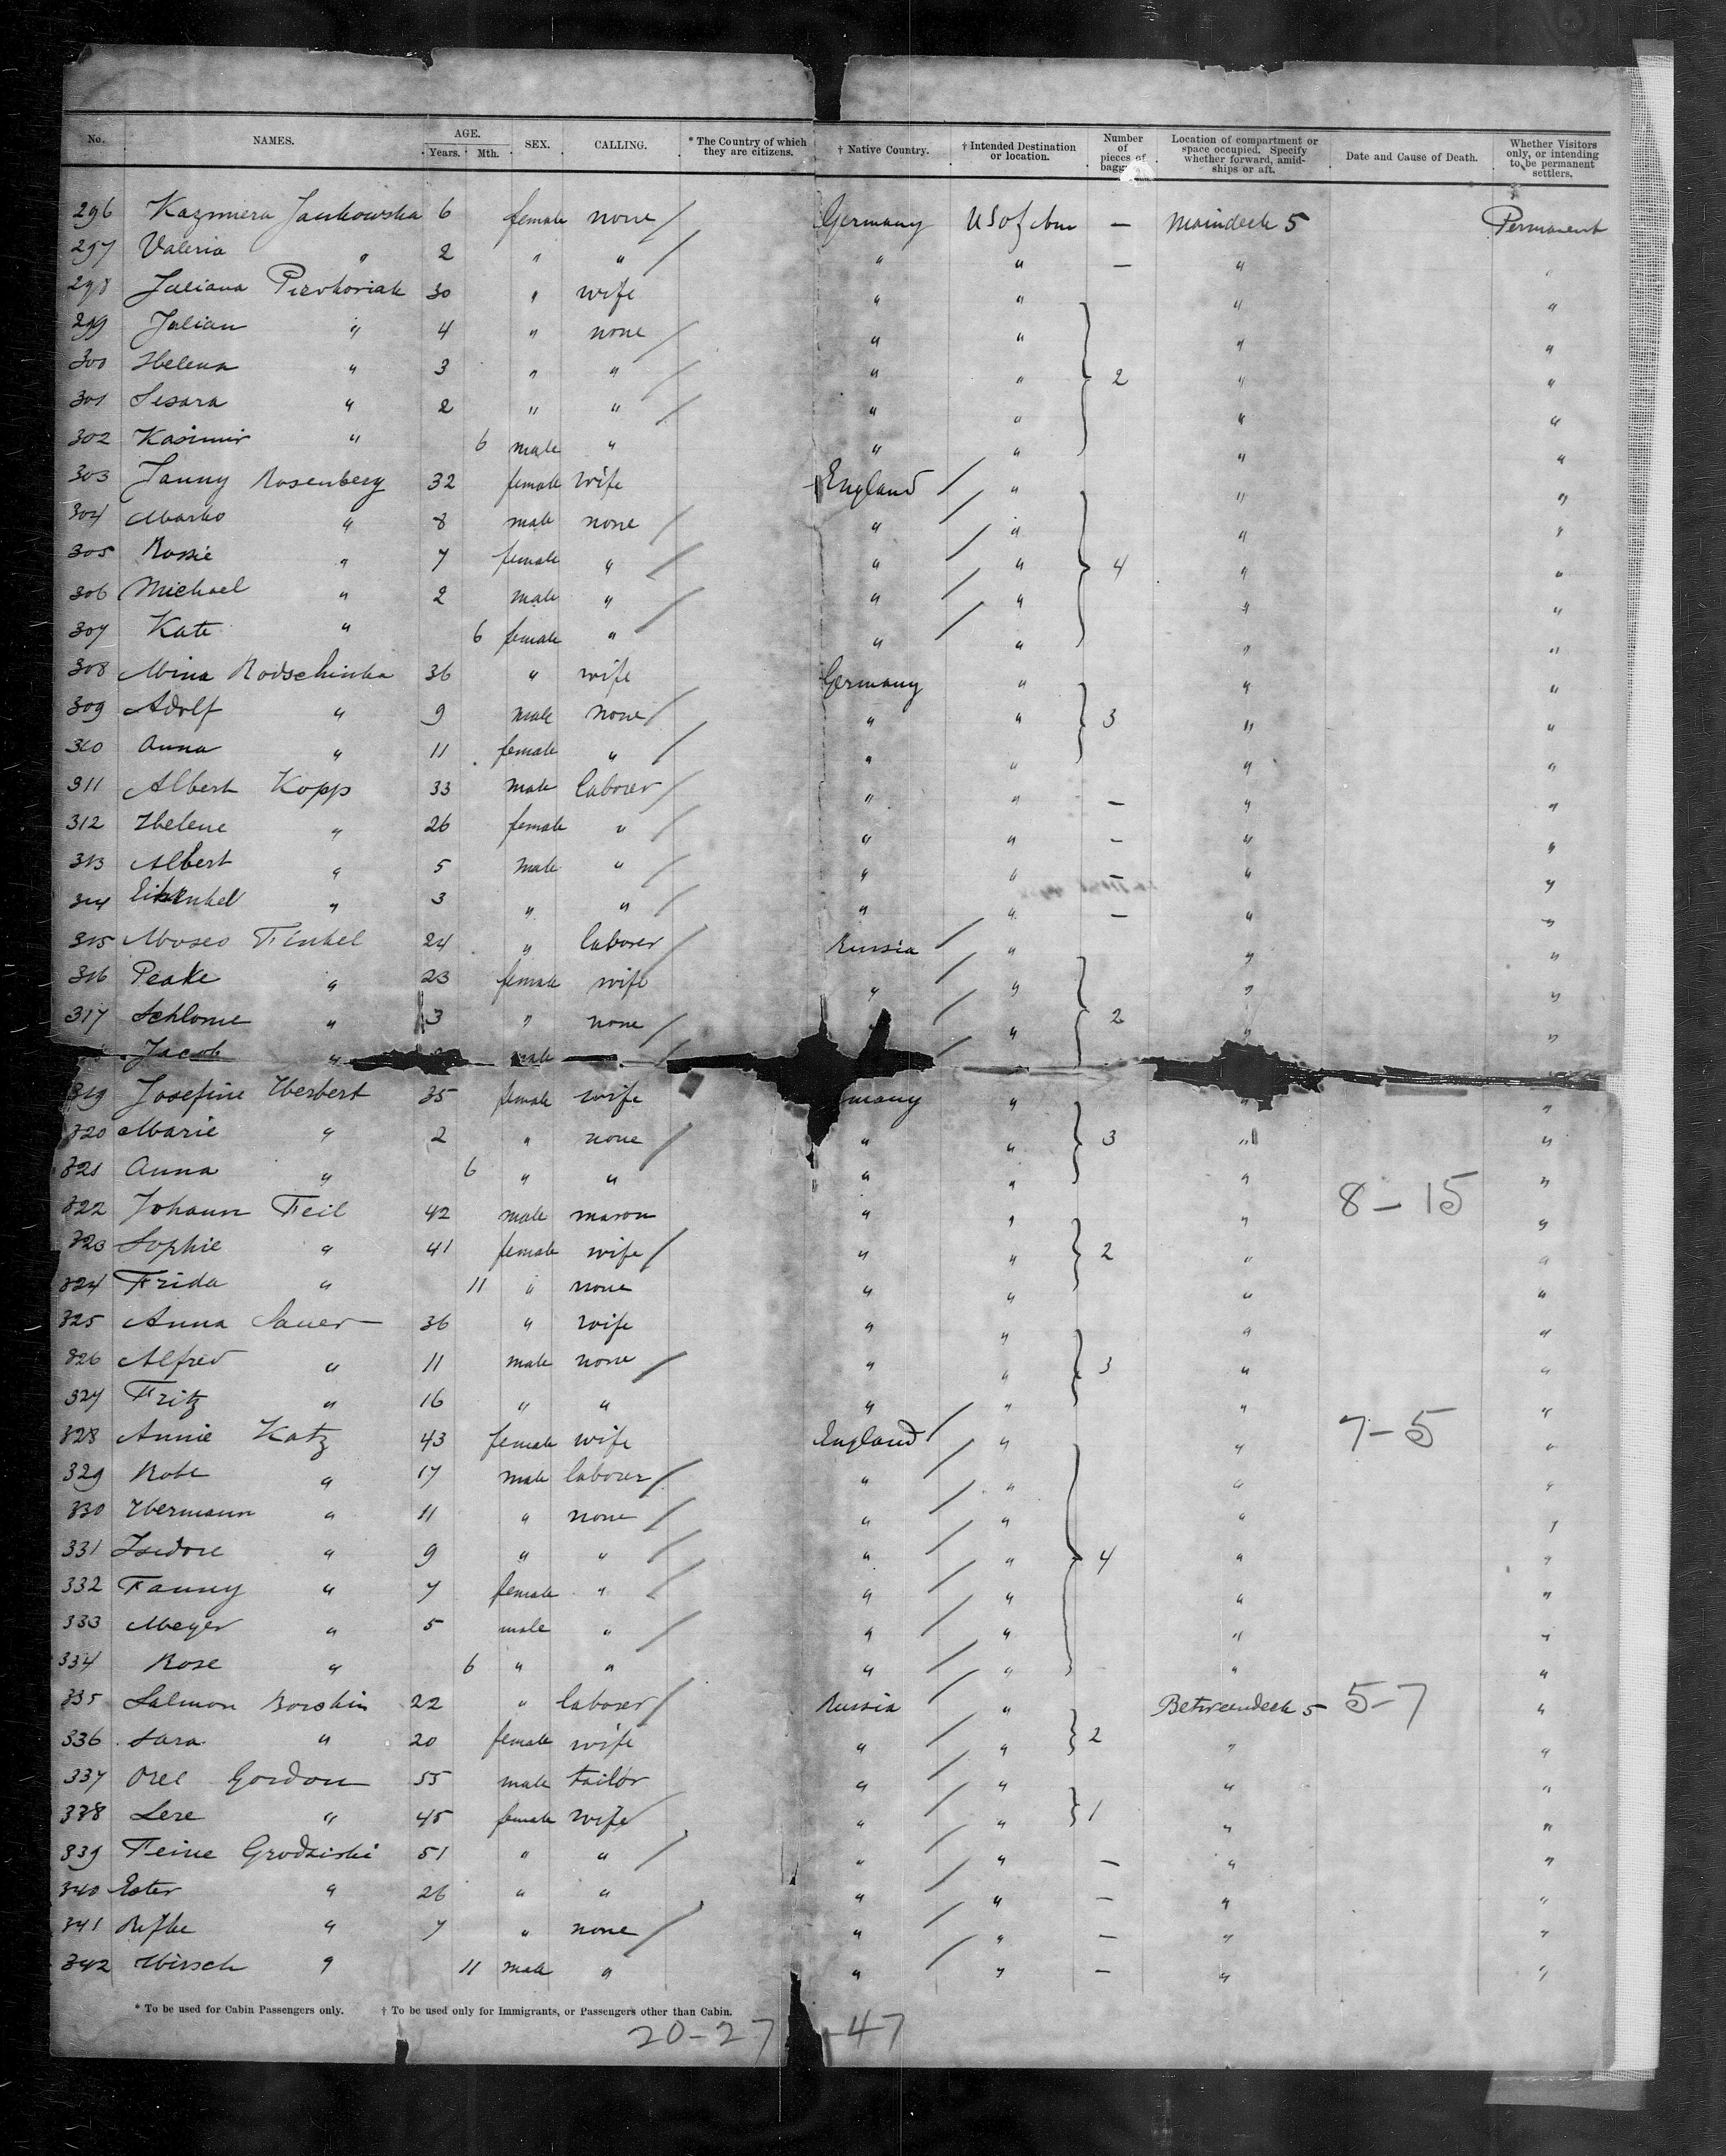 No. NAMES. AGE. Years. Mth. SEX. CALLING. * The Country of which they are citizens. † Native Country. † Intended Destination or location. Number of pieces of baggage Location of compartment or space occupied. Specify whether forward, amid-ships or aft. Date and Cause of Death. Whether Visitors only, or intending to be permanent settlers.
296 Kazmiera Jankowska 6 female none / Germany U S of Am — Maindeck 5 Permanent
297 Valeria " 2 " " / " " — " "
298 Juliana 30 " wife " " " "
299 Julian " 4 " none / " " " "
300 Helena " 3 " " / " " 2 " "
301 " 2 " " / " " " "
302 Kasimir " 6 male " " " " "
303 Fanny Rosenberg 32 female wife England / " " "
304 Marko " 8 male none / " / " " "
305 Rosie " 7 female " / " / " 4 " "
306 Michael " 2 male " / " / " " "
307 Kate " 6 female " " / " " "
308 Mina Rodschinka 36 " wife Germany " " "
309 Adolf " 9 male none / " " 3 " "
310 Anna " 11 female " / " " " "
311 Albert Kopp 33 male laborer / " " — " "
312 Helene " 26 female " / " " — " "
313 Albert " 5 male " / " " — " "
314 " 3 " " / " " — " "
315 Moses Finkel 24 " laborer / Russia / " " "
316 Peake " 23 female wife " / " " "
317 Schlome " 3 " none / / " 2 " "
Jacob " male / /
319 Josefine Herbert 35 female wife many " " "
320 Marie " 2 " none / " " 3 " "
321 Anna " 6 " " " " " "
322 Johann Feil 42 male mason " " " 8-15 "
323 Sophie " 41 female wife / " " 2 " "
324 Frida " 11 " none " " " "
325 Anna Sauer 36 " wife " " " "
326 Alfred " 11 male none / " " 3 " "
327 Fritz " 16 " " " " " "
328 Annie Katz 43 female wife England / " " 7-5 "
329 Robt " 17 male laborer / " / " " "
330 Hermann " 11 " none / " / " " "
331 Isidore " 9 " " / " / " 4 " "
332 Fanny " 7 female " / " / " " "
333 Meyer " 5 male " / " / " " "
334 Rose " 6 " " " / " " "
335 Salmon Borskin 22 " laborer / Russia " Betweendeck 5 5-7 "
336 Sara " 20 female wife " / " 2 " "
337 Orel Gordon 55 male tailor " / " " "
338 Lere " 45 female wife / " / " 1 " "
339 Feine Grodziski 51 " " / " / " — " "
340 Ester " 26 " " " / " — " "
341 Rifke " 7 " none / " / " — " "
342 Hirsch " 11 male " " / " — " "
* To be used for Cabin Passengers only. † To be used only for Immigrants, or Passengers other than Cabin.
20-27 -47